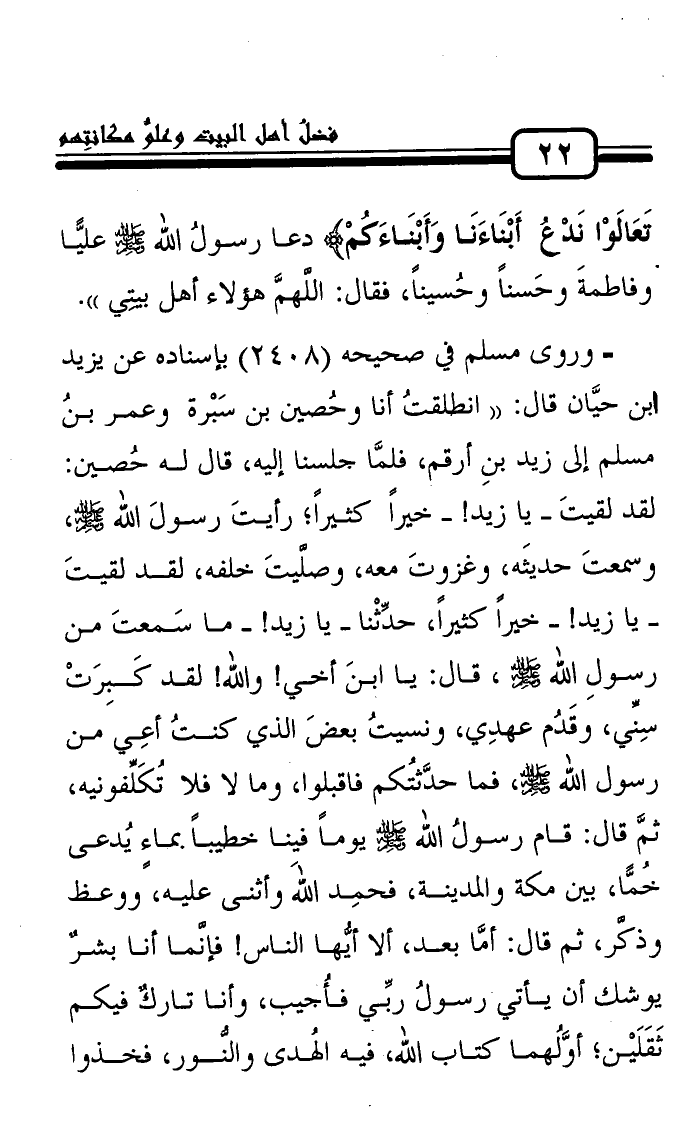 فضلُ أهل البيت وعلوُّ مكانتِهم
٢٢
تَعَالَوْا نَدْعُ أَبْنَاءَنَا وَأَبْنَاءَكُمْ﴾ دعا رسولُ الله ﷺ عليًّا
وفاطمةَ وحَسناً وحُسيناً، فقال: اللَّهمَّ هؤلاء أهل بيتِي ».
ـ وروى مسلم في صحيحه (٢٤٠٨) بإسناده عن يزيد
ابن حيَّان قال: « انطلقتُ أنا وحُصين بن سَبْرة وعمر بنُ
مسلم إلى زيد بنِ أرقم، فلمَّا جلسنا إليه، قال له حُصين:
لقد لقيتَ ـ يا زيد! ـ خيراً كثيراً؛ رأيتَ رسولَ الله ﷺ،
وسمعتَ حديثَه، وغزوتَ معه، وصلَّيتَ خلفه، لقد لقيتَ
ـ يا زيد! ـ خيراً كثيراً، حدِّثْنا ـ يا زيد! ـ ما سَمعتَ من
رسولِ الله ﷺ ، قال: يا ابنَ أخي! والله! لقد كَبِرَتْ
سِنِّي، وقَدُم عهدِي، ونسيتُ بعضَ الذي كنتُ أعِي من
رسول الله ﷺ، فما حدَّثتُكم فاقبلوا، وما لا فلا تُكَلِّفونيه،
ثمَّ قال: قام رسولُ الله ﷺ يوماً فينا خطيباً بماءٍ يُدعى
خُمًّا، بين مكة والمدينة، فحمِد اللهَ وأثنى عليه، ووعظ
وذكَّر، ثم قال: أمَّا بعد، ألا أيُّها الناس! فإنَّما أنا بشرٌ
يوشك أن يأتي رسولُ ربِّي فأُجيب، وأنا تاركٌ فيكم
ثَقَلَيْن؛ أوَّلُهما كتاب الله، فيه الهُدى والنُّور، فخذوا